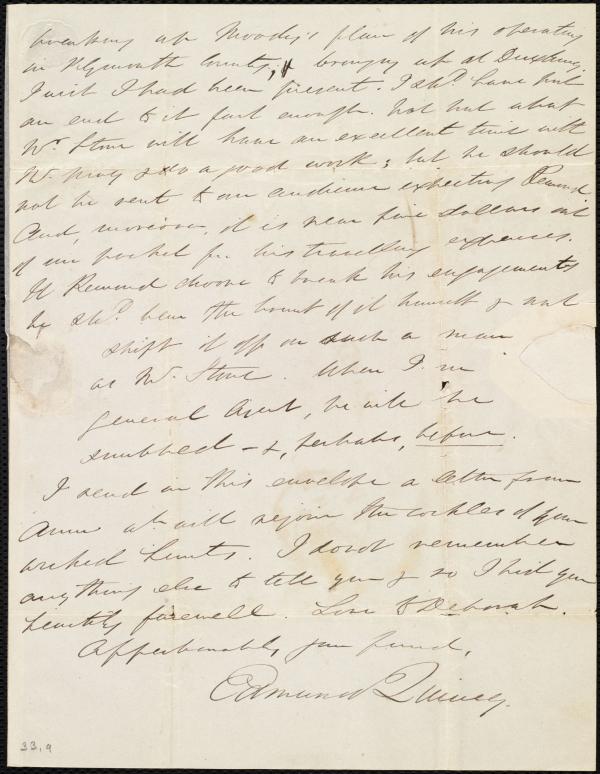 breaking up Moody's plan of his operating
in Plymouth County, & bringing up at Duxbury.
I wish I had been present. I shd. have put
an end to it fast enough. Not but what
Mr. Stone will have an excellent time with
& do a good work; but he should
not be sent to an audience expecting Remond.
And, moreover, it is near five dollars out
of our pocket for his travelling expenses.
If Remond choose to break his engagements
he shd. bear the brunt of it himself & not
shift it off on such a man
as Mr. Stone. When I'm
General Agent, he will be
snubbed – &, perhaps, before.
I send in this envelope a letter from
Anne wh will rejoice the cockles of your
wicked hearts. I do not remember
anything else to tell you & so I bid you
heartily farewell. Love to Deborah.
Affectionately your friend,
Edmund Quincy.
33, 9